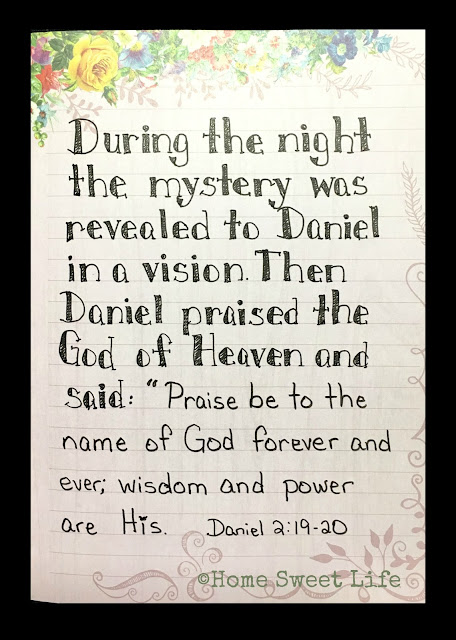 During the night
the mystery was
revealed to Daniel
in a vision. Then
Daniel praised the
God of Heaven and
said: "Praise be to the
name of God forever and
ever; wisdom and power
are His. Daniel 2:19-20
©Home Sweet Life